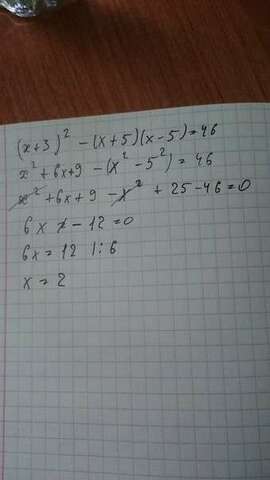 (x+3)² - (x+5)(x-5)=46
x²+6x+9-(x²-5²)=46
x²+6x+9-x²+25-46=0
6x-12=0
6x=12 |:6
x=2